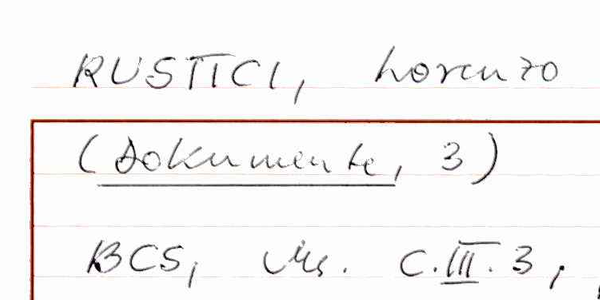 RUSTICI, Lorenzo
(Dokumente, 3)
BCS, Ms. C.III.3,